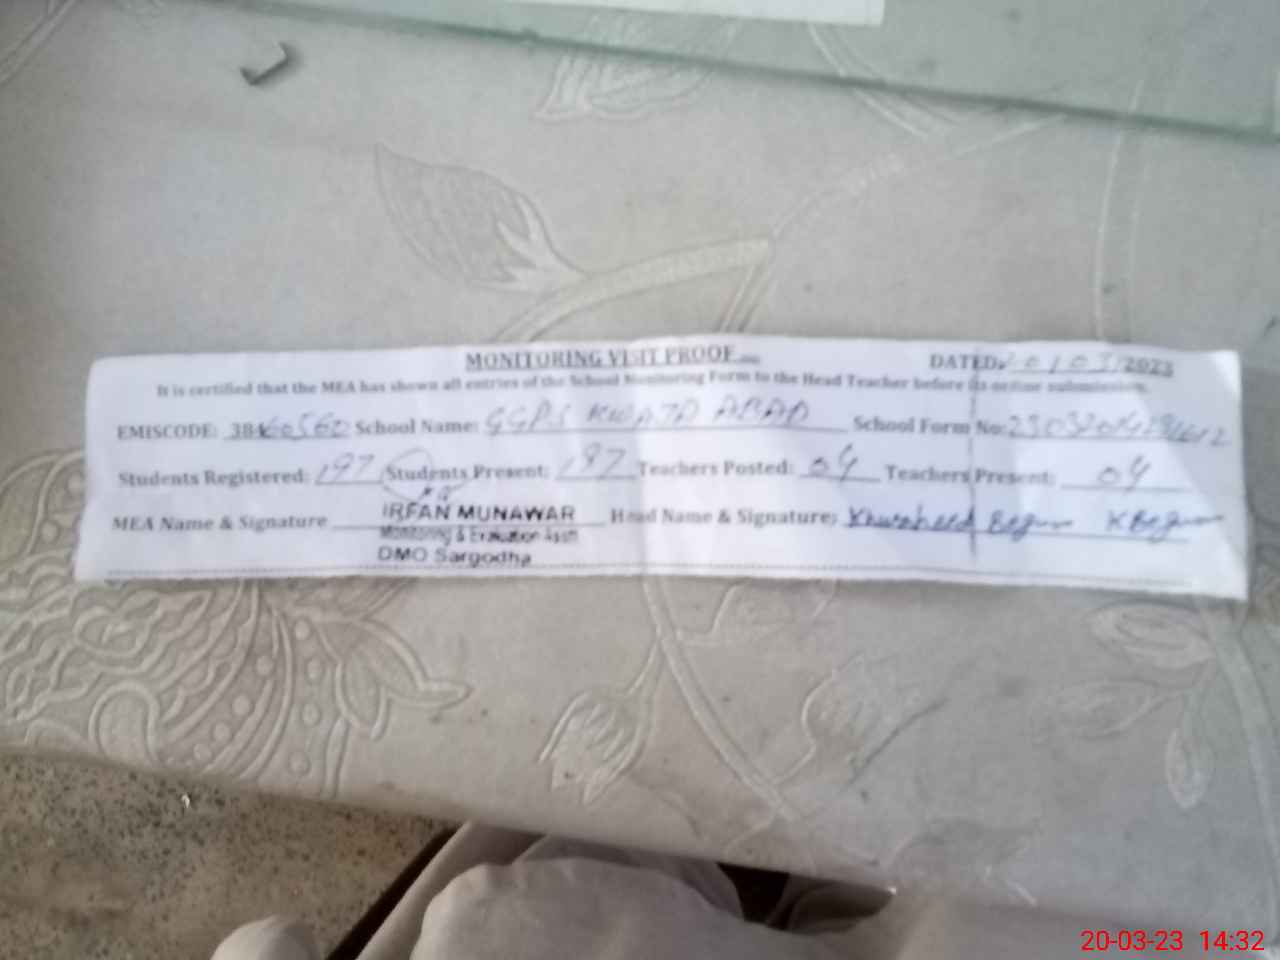 MONITORING VISIT PROOF
DATED: 20/03/2023
It is certified that the MEA has shown all entries of the School Monitoring Form to the Head Teacher before its online submission.
EMISCODE: 38460560 School Name: GGPS KWAJA ABAD School Form No:
Students Registered: 197 Students Present: 187 Teachers Posted: 04 Teachers Present: 04
MEA Name & Signature IRFAN MUNAWAR Head Name & Signature: Khursheed Begum KBegum
Monitoring & Evaluation Asstt
DMO Sargodha
20-03-23 14:32